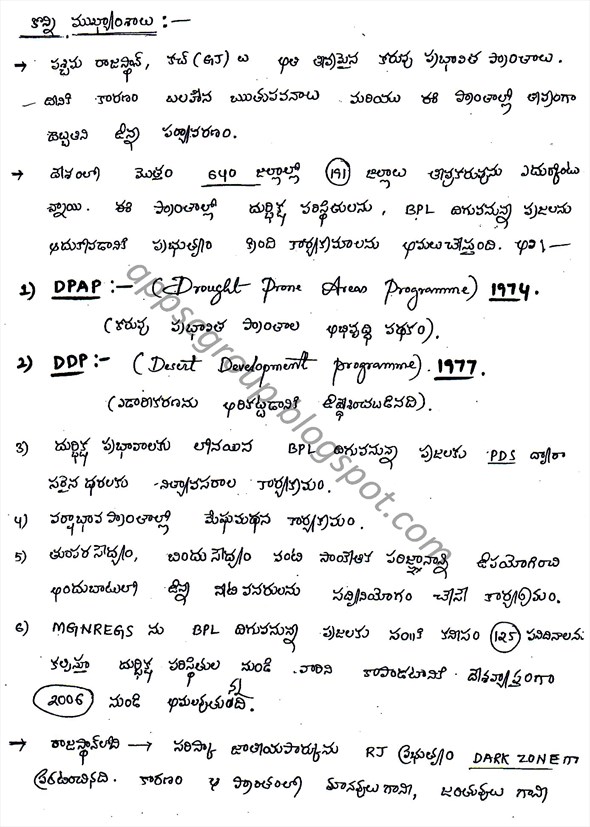 కొన్ని ముఖ్యాంశాలు :—
→ పశ్చిమ రాజస్థాన్, కచ్ (GJ) లు అతి తీవ్రమైన కరువు ప్రభావిత ప్రాంతాలు.
దీనికి కారణం బలహీన ఋతుపవనాలు మరియు ఈ ప్రాంతాల్లో తీవ్రంగా
దెబ్బతిని ఉన్న పర్యావరణం.
→ దేశంలో మొత్తం 640 జిల్లాల్లో 191 జిల్లాలు తీవ్రకరువును ఎదుర్కొంటు
న్నాయి. ఈ ప్రాంతాల్లో దుర్భిక్ష పరిస్థితులను, BPL దిగువనున్న ప్రజలను
ఆదుకోవడానికి ప్రభుత్వం క్రింది కార్యక్రమాలను అమలుచేస్తుంది. అవి।—
1) DPAP :— (Drought Prone Areas Programme) 1974.
(కరువు ప్రభావిత ప్రాంతాల అభివృద్ధి పథకం).
2) DDP :- (Desert Development programme). 1977.
(ఎడారీకరణను అరికట్టడానికి ఉద్దేశించబడినది).
3) దుర్భిక్ష ప్రభావాలకు లోనయిన BPL దిగువనున్న ప్రజలకు PDS ద్వారా
సరైన ధరలకు నిత్యావసరాల కార్యక్రమం.
4) వర్షాభావ ప్రాంతాల్లో మేఘమథన కార్యక్రమం.
5) తుంపర సేద్యం, బిందుసేద్యం వంటి సాంకేతిక పరిజ్ఞానాన్ని ఉపయోగించి
అందుబాటులో ఉన్న నీటి వనరులను సద్వినియోగం చేసే కార్యక్రమం.
6) MGNREGS ను BPL దిగువనున్న ప్రజలకు సం॥కి కనీసం 125 పనిదినాలను
కల్పిస్తూ దుర్భిక్ష పరిస్థితుల నుండి వారిని కాపాడటానికి దేశవ్యాప్తంగా
2006 నుండి అమలవుతున్నది.
→ రాజస్థాన్‌లోని → సరిస్కా జాతీయపార్కును RJ ప్రభుత్వం DARK ZONE గా
ప్రకటించినది. కారణం ఆ ప్రాంతంలో మానవులు గానీ, జంతువులు గానీ
appscgroup.blogspot.com